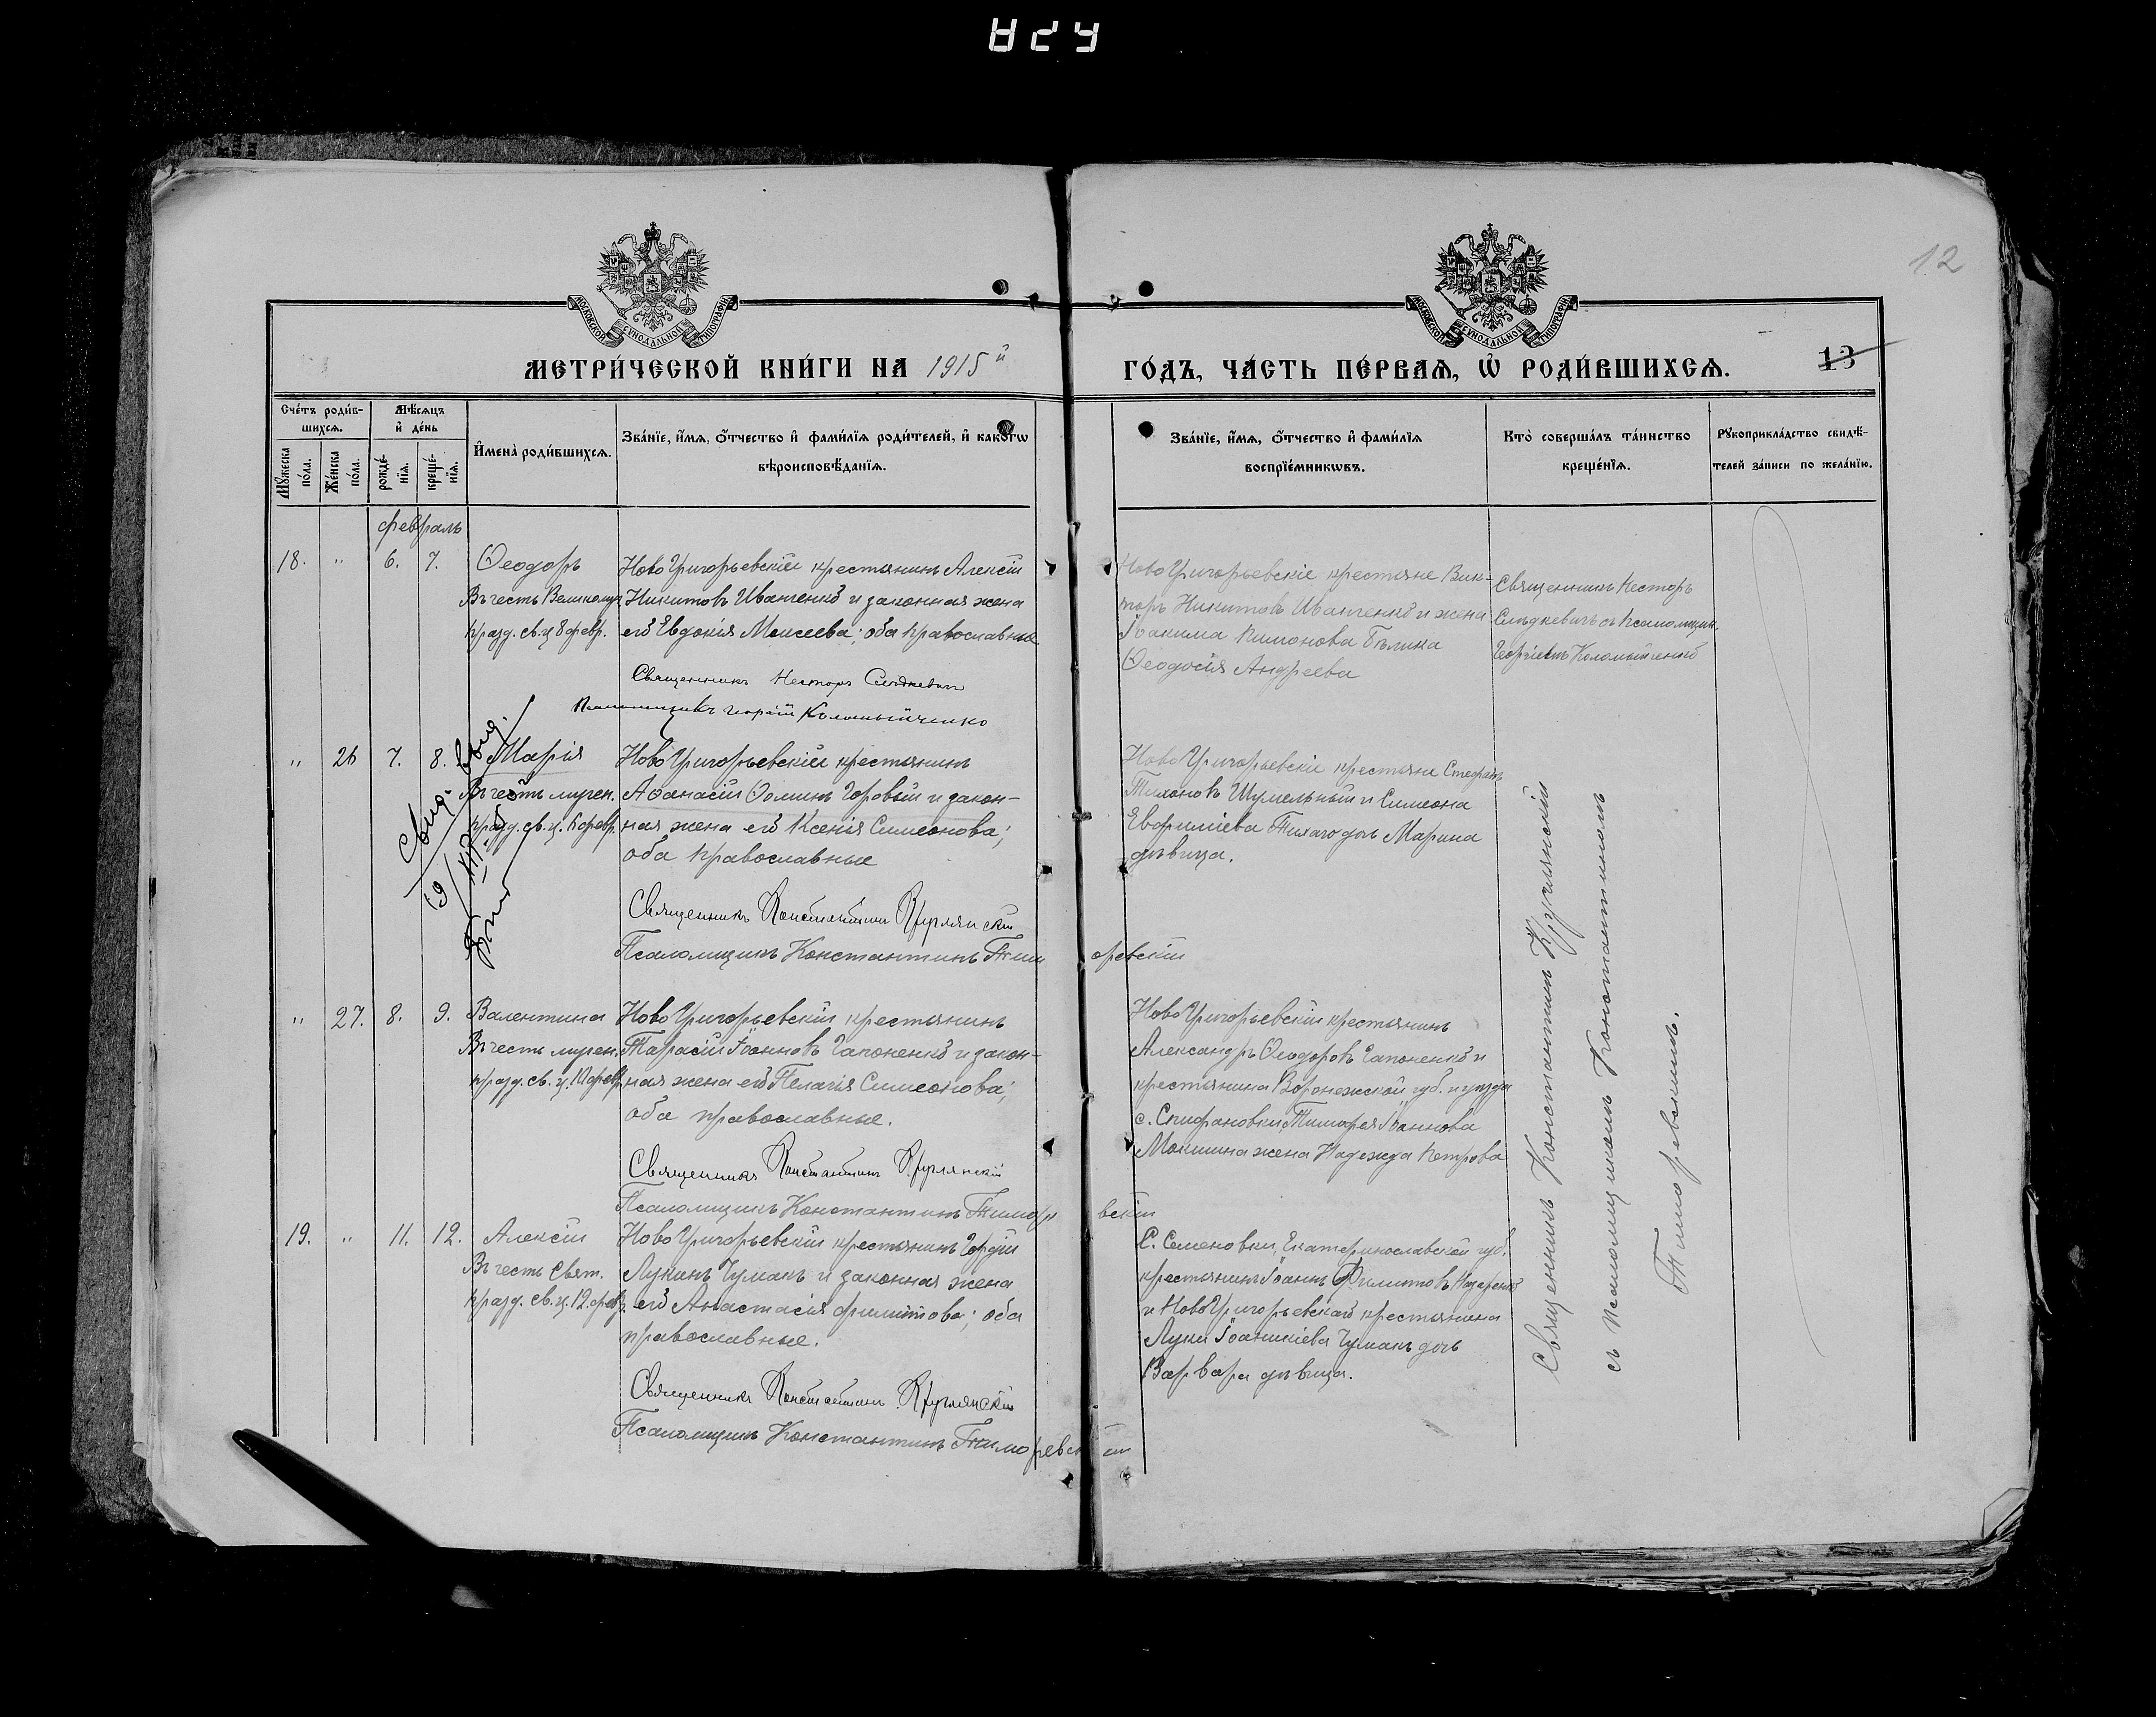 12
МЕТРИ́ЧЕСКОЙ КНИ́ГИ НА 1915й
ГО́ДЪ, ЧА́СТЬ ПЕ́РВАѦ, Ѡ҆ РОДИ́ВШИХСѦ.
13
Сче́тъ роди́в-
шихсѧ.
Мѣ́сѧцъ
и҆ де́нь
Мꙋ́жеска
по́ла.
Же́нска
по́ла.
рожде́-
нїѧ.
креще́-
нїѧ.
И҆мена̀ роди́вшихсѧ.
Зва́нїе, и҆́мѧ, ѻ҆́тчество и҆ фами́лїѧ роди́телей, и҆ како́гѡ
вѣроисповѣ́данїѧ.
Зва́нїе, и҆́мѧ, ѻ҆́тчество и҆ фами́лїѧ
воспрїе́мникѡвъ.
Кто̀ соверша́лъ та́инство
креще́нїѧ.
Рꙋкоприкла́дство свидѣ́-
телей за́писи по жела́нїю.
февраль
18. " 6. 7.
Ѳеодоръ
Въ честь Великомуч.
празд. св. ц. 8 февр.
Ново Григорьевскій крестьянинъ Алексій
Никитовъ Иванченко и законная жена
его Евдокія Моисеева; оба православные
Священникъ Несторъ
Псаломщикъ Георгій Коломыйченко
Ново Григорьевскіе крестьяне Вик-
торъ Никитовъ Иванченко и жена
Іоакима Кимонова Бѣлика
Ѳеодосія Андреева
Священникъ Несторъ
съ псаломщик.
Георгіемъ Коломыйченко
" 26 7. 8.
Марія
Въ честь мучен.
празд. св. ц. февр.
Свид.
Ново Григорьевскій крестьянинъ
Аѳанасій Ѳоминъ Горовый и закон-
ная жена его Ксенія Симеонова;
оба православные
Священникъ Константинъ Круглянскій
Псаломщикъ Константинъ Тим оревскій
Ново Григорьевскіе крестьяне Стефанъ
Тихоновъ Шумельный и Симеона
Евфиміева дочь Марина
дѣвица.
" 27. 8. 9.
Валентина
Въ честь мучен.
празд. св. ц. 10 февр.
Ново Григорьевскій крестьянинъ
Тарасій Іоанновъ Гапоненко и закон-
ная жена его Пелагія Симеонова;
оба православные.
Священникъ Константинъ Круглянскій
Псаломщикъ Константинъ Тимор евскій
Ново Григорьевскій крестьянинъ
Александръ Ѳеодоровъ Гапоненко и
крестьянина Воронежской губ. и уѣзда
с. Епифановки, Тимоѳея Іоаннова
Мокшина жена Надежда Петрова
19. " 11. 12.
Алексій
Въ честь Свят.
празд. св. ц. 12 февр.
Ново Григорьевскій крестьянинъ Гордій
Лукинъ Чумакъ и законная жена
его Анастасія Филиппова; оба
православные.
Священникъ Константинъ Круглянскій
Псаломщикъ Константинъ Тиморевскій
С. Семеновки, Екатеринославской губ.
крестьянинъ Іоаннъ Филипповъ Назаренко
и Ново Григорьевскаго крестьянина
Луки Іоаникіева Чумакъ дочь
Варвара дѣвица.
Священникъ Константинъ Круглянскій
съ псаломщикомъ Константиномъ
Тиморевскимъ.